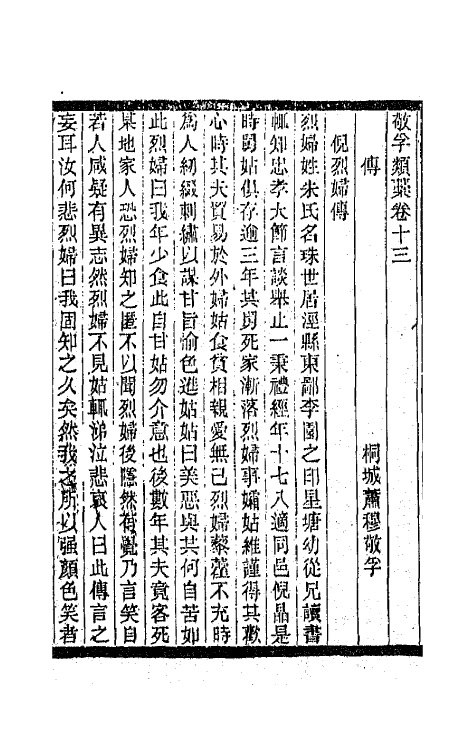 敬孚類藁卷十三
桐城蕭穆敬孚
傳
倪烈婦傳
烈婦姓朱氏名珠世居涇縣東鄙李園之印星塘幼從兄讀書
輒知忠孝大節言談舉止一秉禮經年十七八適同邑倪晶是
時舅姑俱存逾三年其舅死家漸落烈婦事孀姑維謹得其歡
心時其夫貿易於外婦姑食貧相親愛無已烈婦藜藿不充時
爲人紉綴刺繡以謀甘旨愉色進姑姑曰美惡與共何自苦如
此烈婦曰我年少食此自甘姑勿介意也後數年其夫竟客死
某地家人恐烈婦知之匿不以聞烈婦後隱然有覺乃言笑自
若人咸疑有異志然烈婦不見姑輒涕泣悲哀人曰此傳言之
妄耳汝何悲烈婦曰我固知之久矣然我之所以强顏色笑者